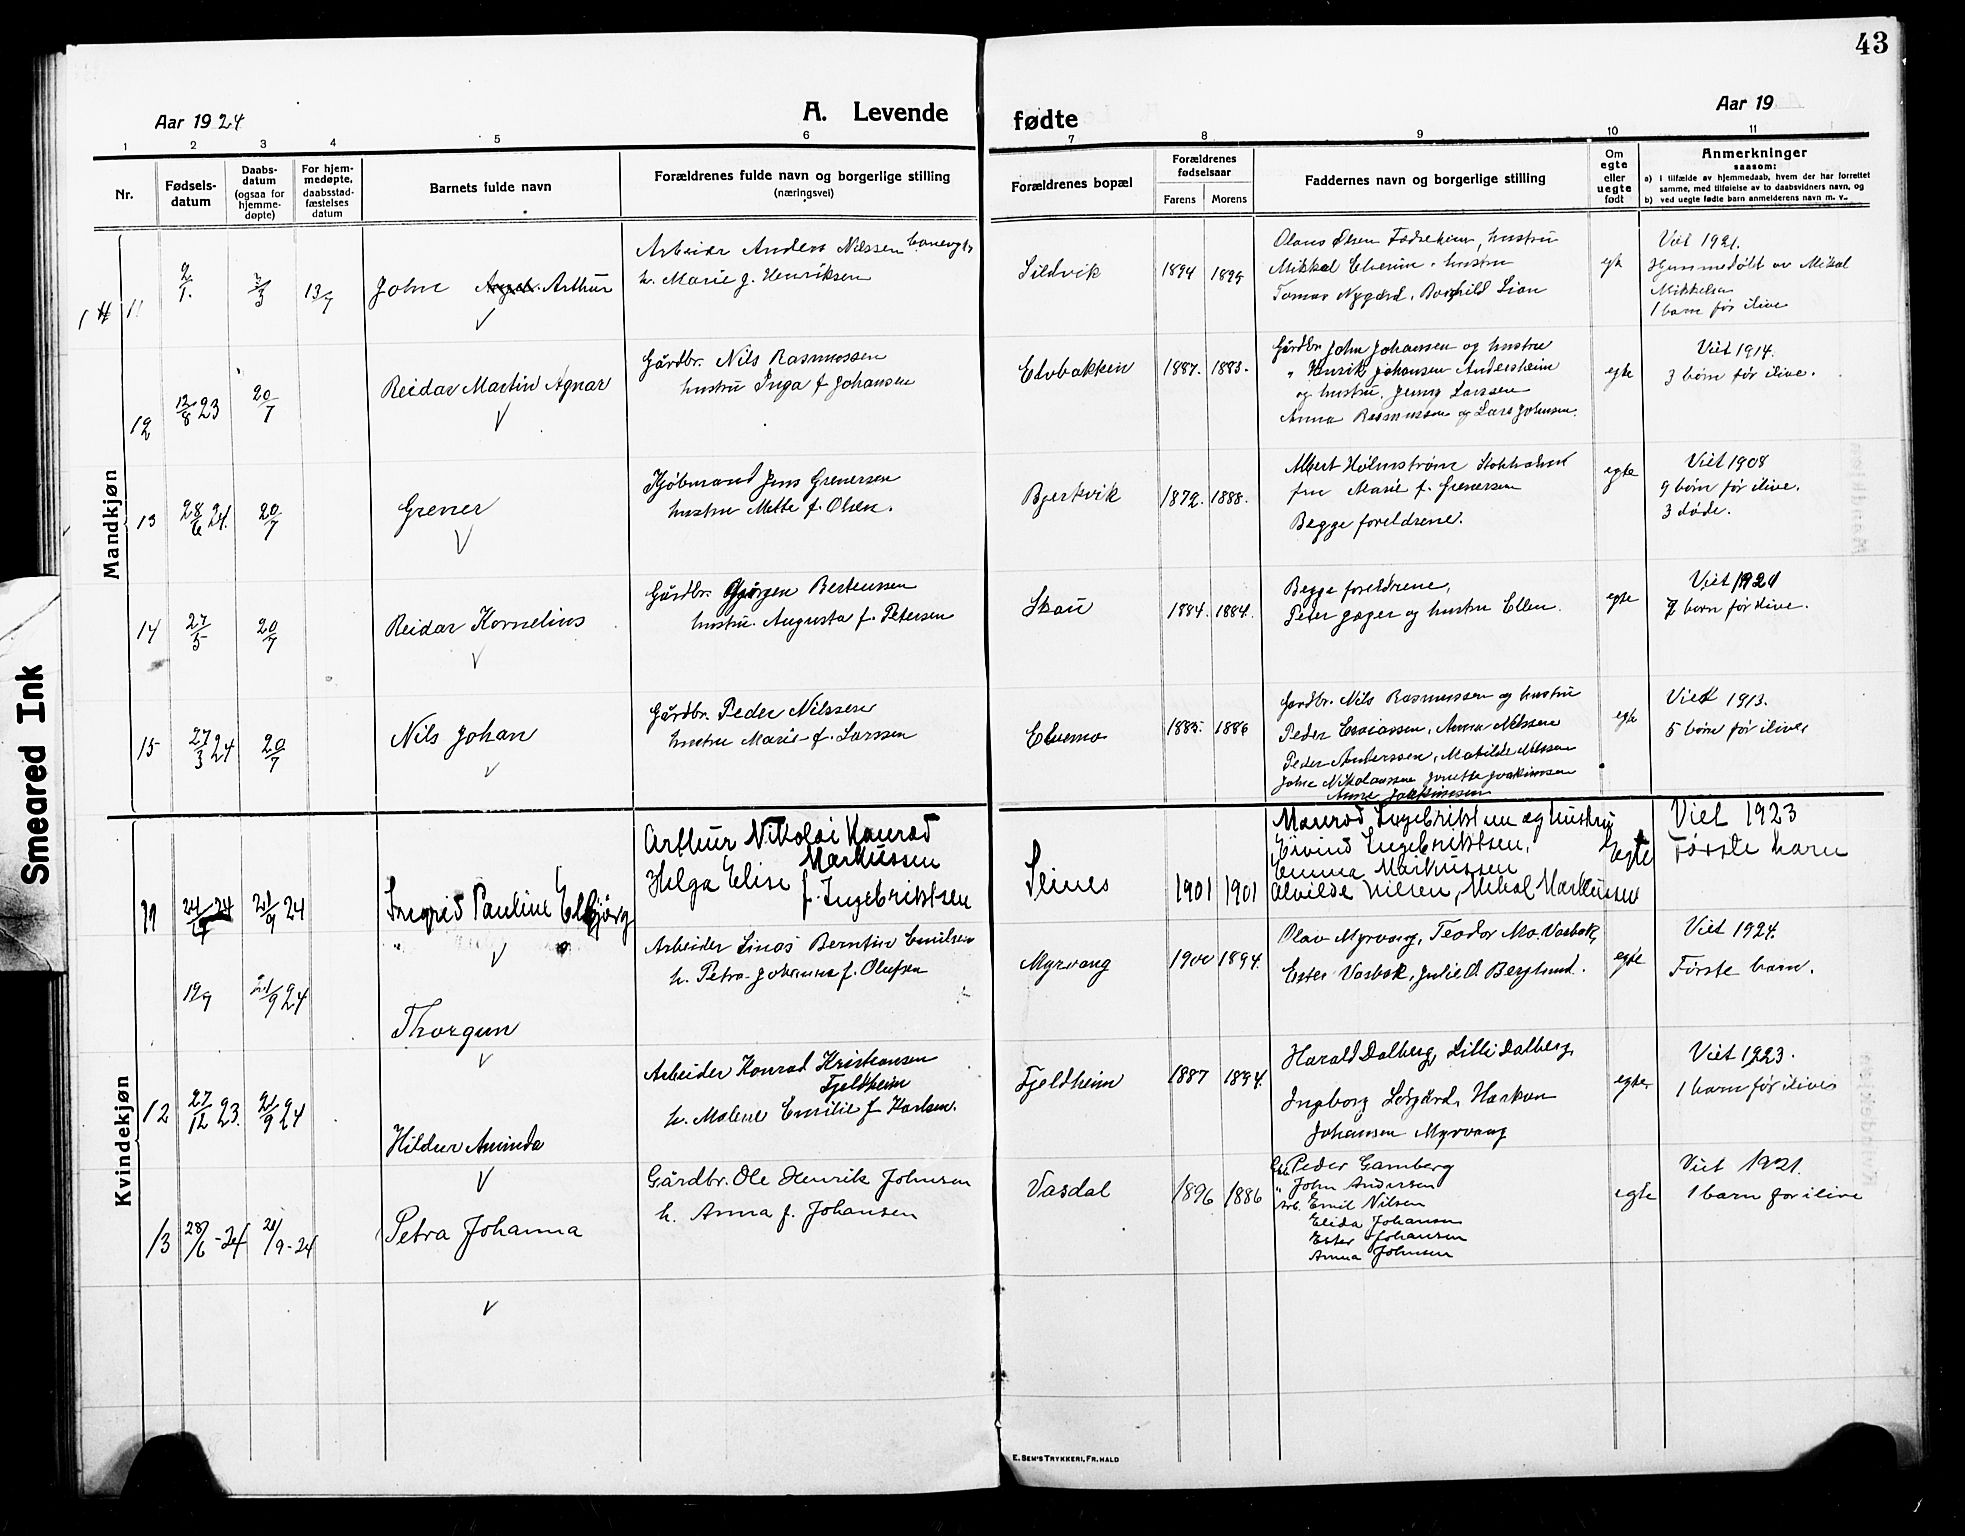 43
Aar 1924
A. Levende
fødte
Aar 19
1 2 3 4 5 6 7 8 9 10 11
Nr.
Fødsels-
datum
Daabs-
datum
(ogsaa for
hjemme-
døpte)
For hjem-
medøpte,
daabsstad-
fæstelses
datum
Barnets fulde navn
Forældrenes fulde navn og borgerlige stilling
(næringsvei)
Forældrenes bopæl
Forældrenes
fødselsaar
Farens
Morens
Faddernes navn og borgerlige stilling
Om
egte
eller
uegte
født
Anmerkninger
saasom:
a) i tilfælde av hjemmedaab, hvem der har forrettet
samme, med tilføielse av to daabsvidners navn, og
b) ved uegte fødte barn anmelderens navn m. v..
Mandkjøn
11
13/7
John Arthur
Arbeider Anders Nilssen
h. Marie f. Henriksen
Sildvik
1894 1895
Olaus Olsen hustru
Mikkal hustru
Tomas Nygård, Borghild Lian
Viet 1921.
Hjemmedøbt av Mikal
Mikkelsen
1 barn før ilive
12
12/8 23
20/7
Reidar Martin Agnar
Gårdbr. Nils Rasmussen
hustru Inga f Johansen
Elvbakken
1887. 1883.
Gårdbr John Johansen og hustru
" Henrik Johansen Andersheim
og hustru. Jenny Larssen
Anna Rasmussen og Lars Johansen.
egte
Viet 1914.
3 børn før ilive.
13
28/6 24.
20/7
Grener
Kjøbmand Jens Grenersen
hustru Mette f. Olsen.
Bjerkvik
1872. 1888.
Albert Holmstrøm
fru Marie f. Grenersen
Begge foreldrene.
egte
Viet 1908
9 børn før ilive.
3 døde.
14
27/5
20/7
Reidar Kornelius
Gårdbr. Jørgen Berteussen
hustru. Augusta f. Petersen
Skau
1884. 1884.
Begge foreldrene,
Peder Jæger og hustru Ellen.
egte
Viet 1921
børn før ilive.
15
27/3 24
20/7
Nils Johan
Gårdbr. Peder Nilssen
hustru Marie f. Larssen
Elvemo
1885. 1886
Gårdbr. Nils Rasmussen og hustru
Peder Esaiassen, Anna Nilssen
Peder Anderssen, Matilde Nilssen
John Nikolaussen Jonette Joakimsen
Anne Joakimsen
egte
Viet 1913.
5 børn før ilive
Kvindekjøn
11
21/9 24
Ingrid Pauline Elbjørg
Arthur Nikolai Konrad
Markussen
Helga Elise
f. Ingebriktsen
Seines
1901 1901
Ingebriktsen og hustru
Eivind Ingebriktsen,
Emma Markussen
Alvilde Nilsen, Mikal Markussen
Egte
Viet 1923
Første barn
21/9 24
Thorgun
Arbeider Linas Berntin Emilsen
h. Petra Johanna f. Olufsen
Myrvang
1900 1894.
Olav Myrvang, Teodor Mo. Vasbak,
Ester Vasbak, Julie O. Berglund.
egte
Viet 1924.
Første barn.
12
27/12 23.
21/9 24
Hildur Aminda
Arbeider Konrad Kristiansen
Fjeldheim
h. Malene Emilie f Karlsen.
Fjeldheim
1887 1894.
Harald Dalberg, Lilli Dalberg,
Ingborg Leigård, Haakon
Johansen Myrvang
egte
Viet 1923.
1 barn før ilive
13
28/6 - 24
21/9 - 24
Petra Johanna
Gårdbr. Ole Henrik Johnsen
h. Anna f. Johansen
Vasdal
1896 1886
Peder Gamberg
" John Andersen
Arb. Emil Nilsen
Elida Johansen
Ester Johansen
Anna Johnsen
egte
Viet 1921.
1 barn før ilive
E. SEM'S TRYKKERI, FR.HALD
Smeared Ink